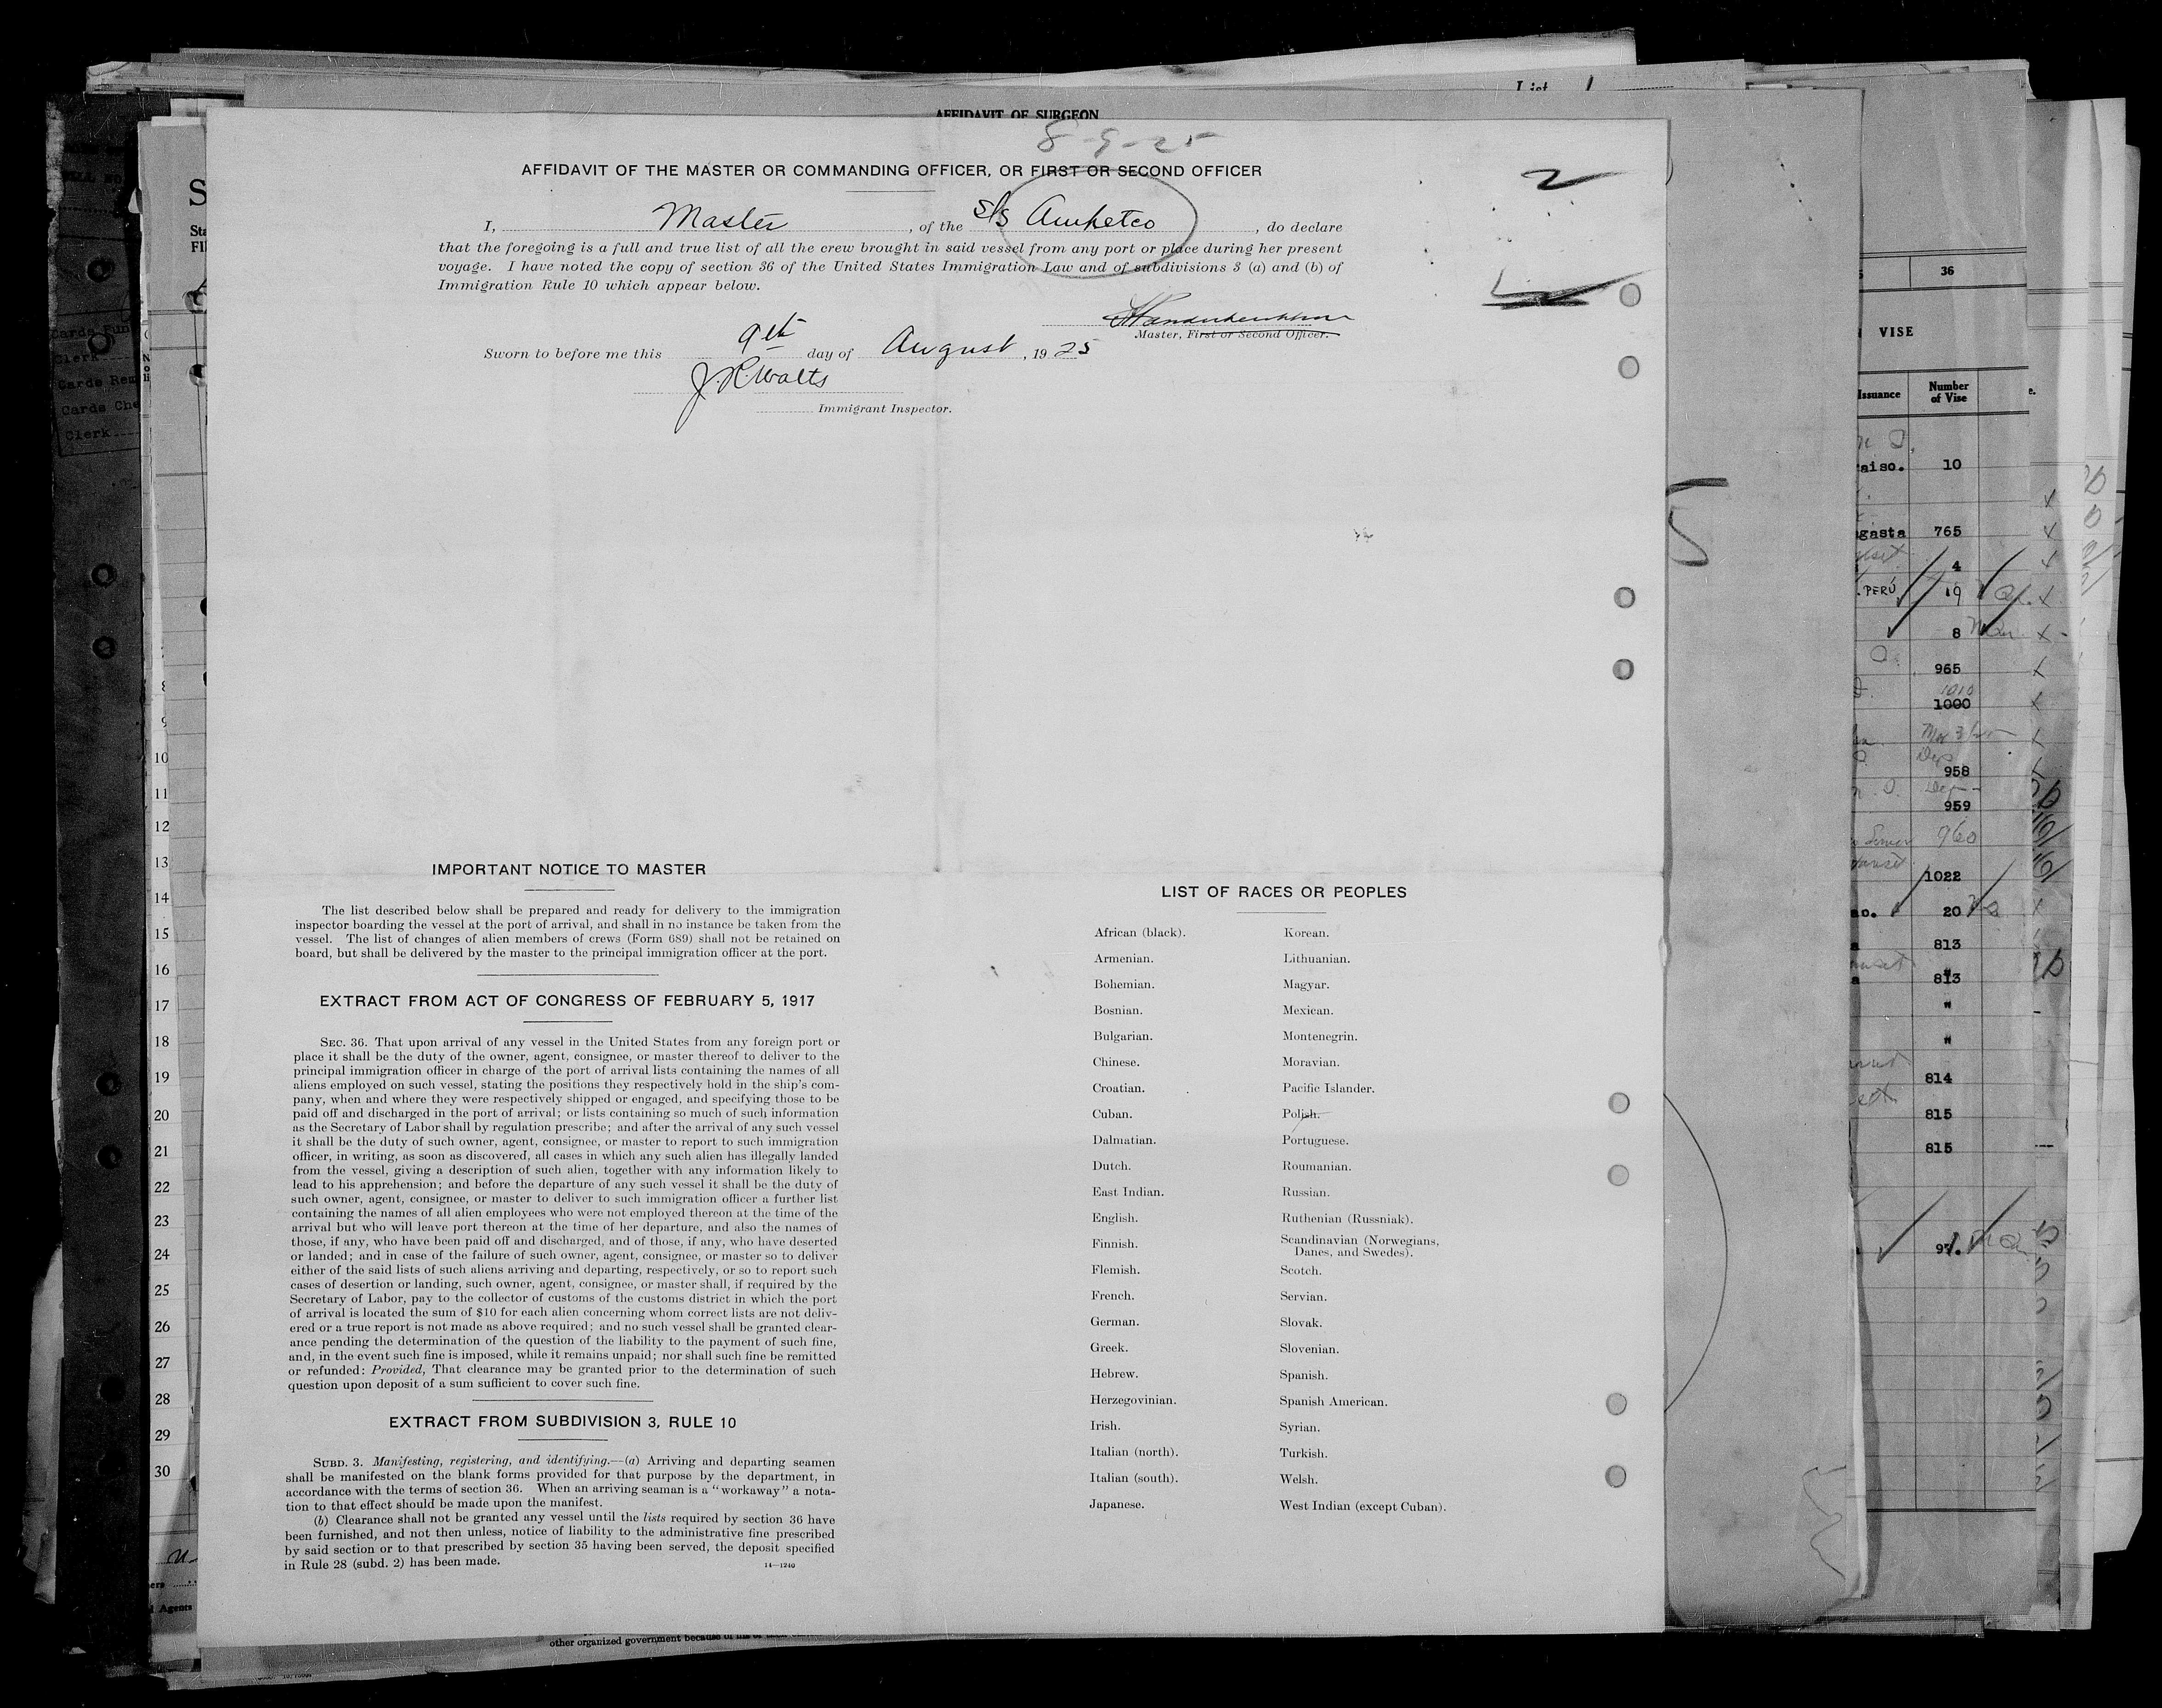 List 1
AFFIDAVIT OF SURGEON
8-9-25
AFFIDAVIT OF THE MASTER OR COMMANDING OFFICER, OR FIRST OR SECOND OFFICER
2
I, Master, of the S/S Amketco, do declare
that the foregoing is a full and true list of all the crew brought in said vessel from any port or place during her present
voyage. I have noted the copy of section 36 of the United States Immigration Law and of subdivisions 3 (a) and (b) of
Immigration Rule 10 which appear below.
Master, First or Second Officer.
Sworn to before me this 9th day of August, 1925
J. R. Walts
Immigrant Inspector.
IMPORTANT NOTICE TO MASTER
The list described below shall be prepared and ready for delivery to the immigration
inspector boarding the vessel at the port of arrival, and shall in no instance be taken from the
vessel. The list of changes of alien members of crews (Form 689) shall not be retained on
board, but shall be delivered by the master to the principal immigration officer at the port.
EXTRACT FROM ACT OF CONGRESS OF FEBRUARY 5, 1917
SEC. 36. That upon arrival of any vessel in the United States from any foreign port or
place it shall be the duty of the owner, agent, consignee, or master thereof to deliver to the
principal immigration officer in charge of the port of arrival lists containing the names of all
aliens employed on such vessel, stating the positions they respectively hold in the ship's com-
pany, when and where they were respectively shipped or engaged, and specifying those to be
paid off and discharged in the port of arrival; or lists containing so much of such information
as the Secretary of Labor shall by regulation prescribe; and after the arrival of any such vessel
it shall be the duty of such owner, agent, consignee, or master to report to such immigration
officer, in writing, as soon as discovered, all cases in which any such alien has illegally landed
from the vessel, giving a description of such alien, together with any information likely to
lead to his apprehension; and before the departure of any such vessel it shall be the duty of
such owner, agent, consignee, or master to deliver to such immigration officer a further list
containing the names of all alien employees who were not employed thereon at the time of the
arrival but who will leave port thereon at the time of her departure, and also the names of
those, if any, who have been paid off and discharged, and of those, if any, who have deserted
or landed; and in case of the failure of such owner, agent, consignee, or master so to deliver
either of the said lists of such aliens arriving and departing, respectively, or so to report such
cases of desertion or landing, such owner, agent, consignee, or master shall, if required by the
Secretary of Labor, pay to the collector of customs of the customs district in which the port
of arrival is located the sum of $10 for each alien concerning whom correct lists are not deliv-
ered or a true report is not made as above required; and no such vessel shall be granted clear-
ance pending the determination of the question of the liability to the payment of such fine,
and, in the event such fine is imposed, while it remains unpaid; nor shall such fine be remitted
or refunded: Provided, That clearance may be granted prior to the determination of such
question upon deposit of a sum sufficient to cover such fine.
EXTRACT FROM SUBDIVISION 3, RULE 10
SUBD. 3. Manifesting, registering, and identifying.—(a) Arriving and departing seamen
shall be manifested on the blank forms provided for that purpose by the department, in
accordance with the terms of section 36. When an arriving seaman is a "workaway" a nota-
tion to that effect should be made upon the manifest.
(b) Clearance shall not be granted any vessel until the lists required by section 36 have
been furnished, and not then unless, notice of liability to the administrative fine prescribed
by said section or to that prescribed by section 35 having been served, the deposit specified
in Rule 28 (subd. 2) has been made.
14—1240
LIST OF RACES OR PEOPLES
African (black).
Armenian.
Bohemian.
Bosnian.
Bulgarian.
Chinese.
Croatian.
Cuban.
Dalmatian.
Dutch.
East Indian.
English.
Finnish.
Flemish.
French.
German.
Greek.
Hebrew.
Herzegovinian.
Irish.
Italian (north).
Italian (south).
Japanese.
Korean.
Lithuanian.
Magyar.
Mexican.
Montenegrin.
Moravian.
Pacific Islander.
Polish.
Portuguese.
Roumanian.
Russian.
Ruthenian (Russniak).
Scandinavian (Norwegians,
Danes, and Swedes).
Scotch.
Servian.
Slovak.
Slovenian.
Spanish.
Spanish American.
Syrian.
Turkish.
Welsh.
West Indian (except Cuban).
Clerk
Cards Che
Clerk
10
11
12
13
14
15
16
17
18
19
20
21
22
23
24
25
26
27
28
29
30
Agents
other organized government because of
5
36
VISE
Issuance
Number
of Vise
aiso. 10
gasta 765
4
PERÚ 19
8
965
1010
1000
958
959
960
1022
20
813
813
"
"
814
815
815